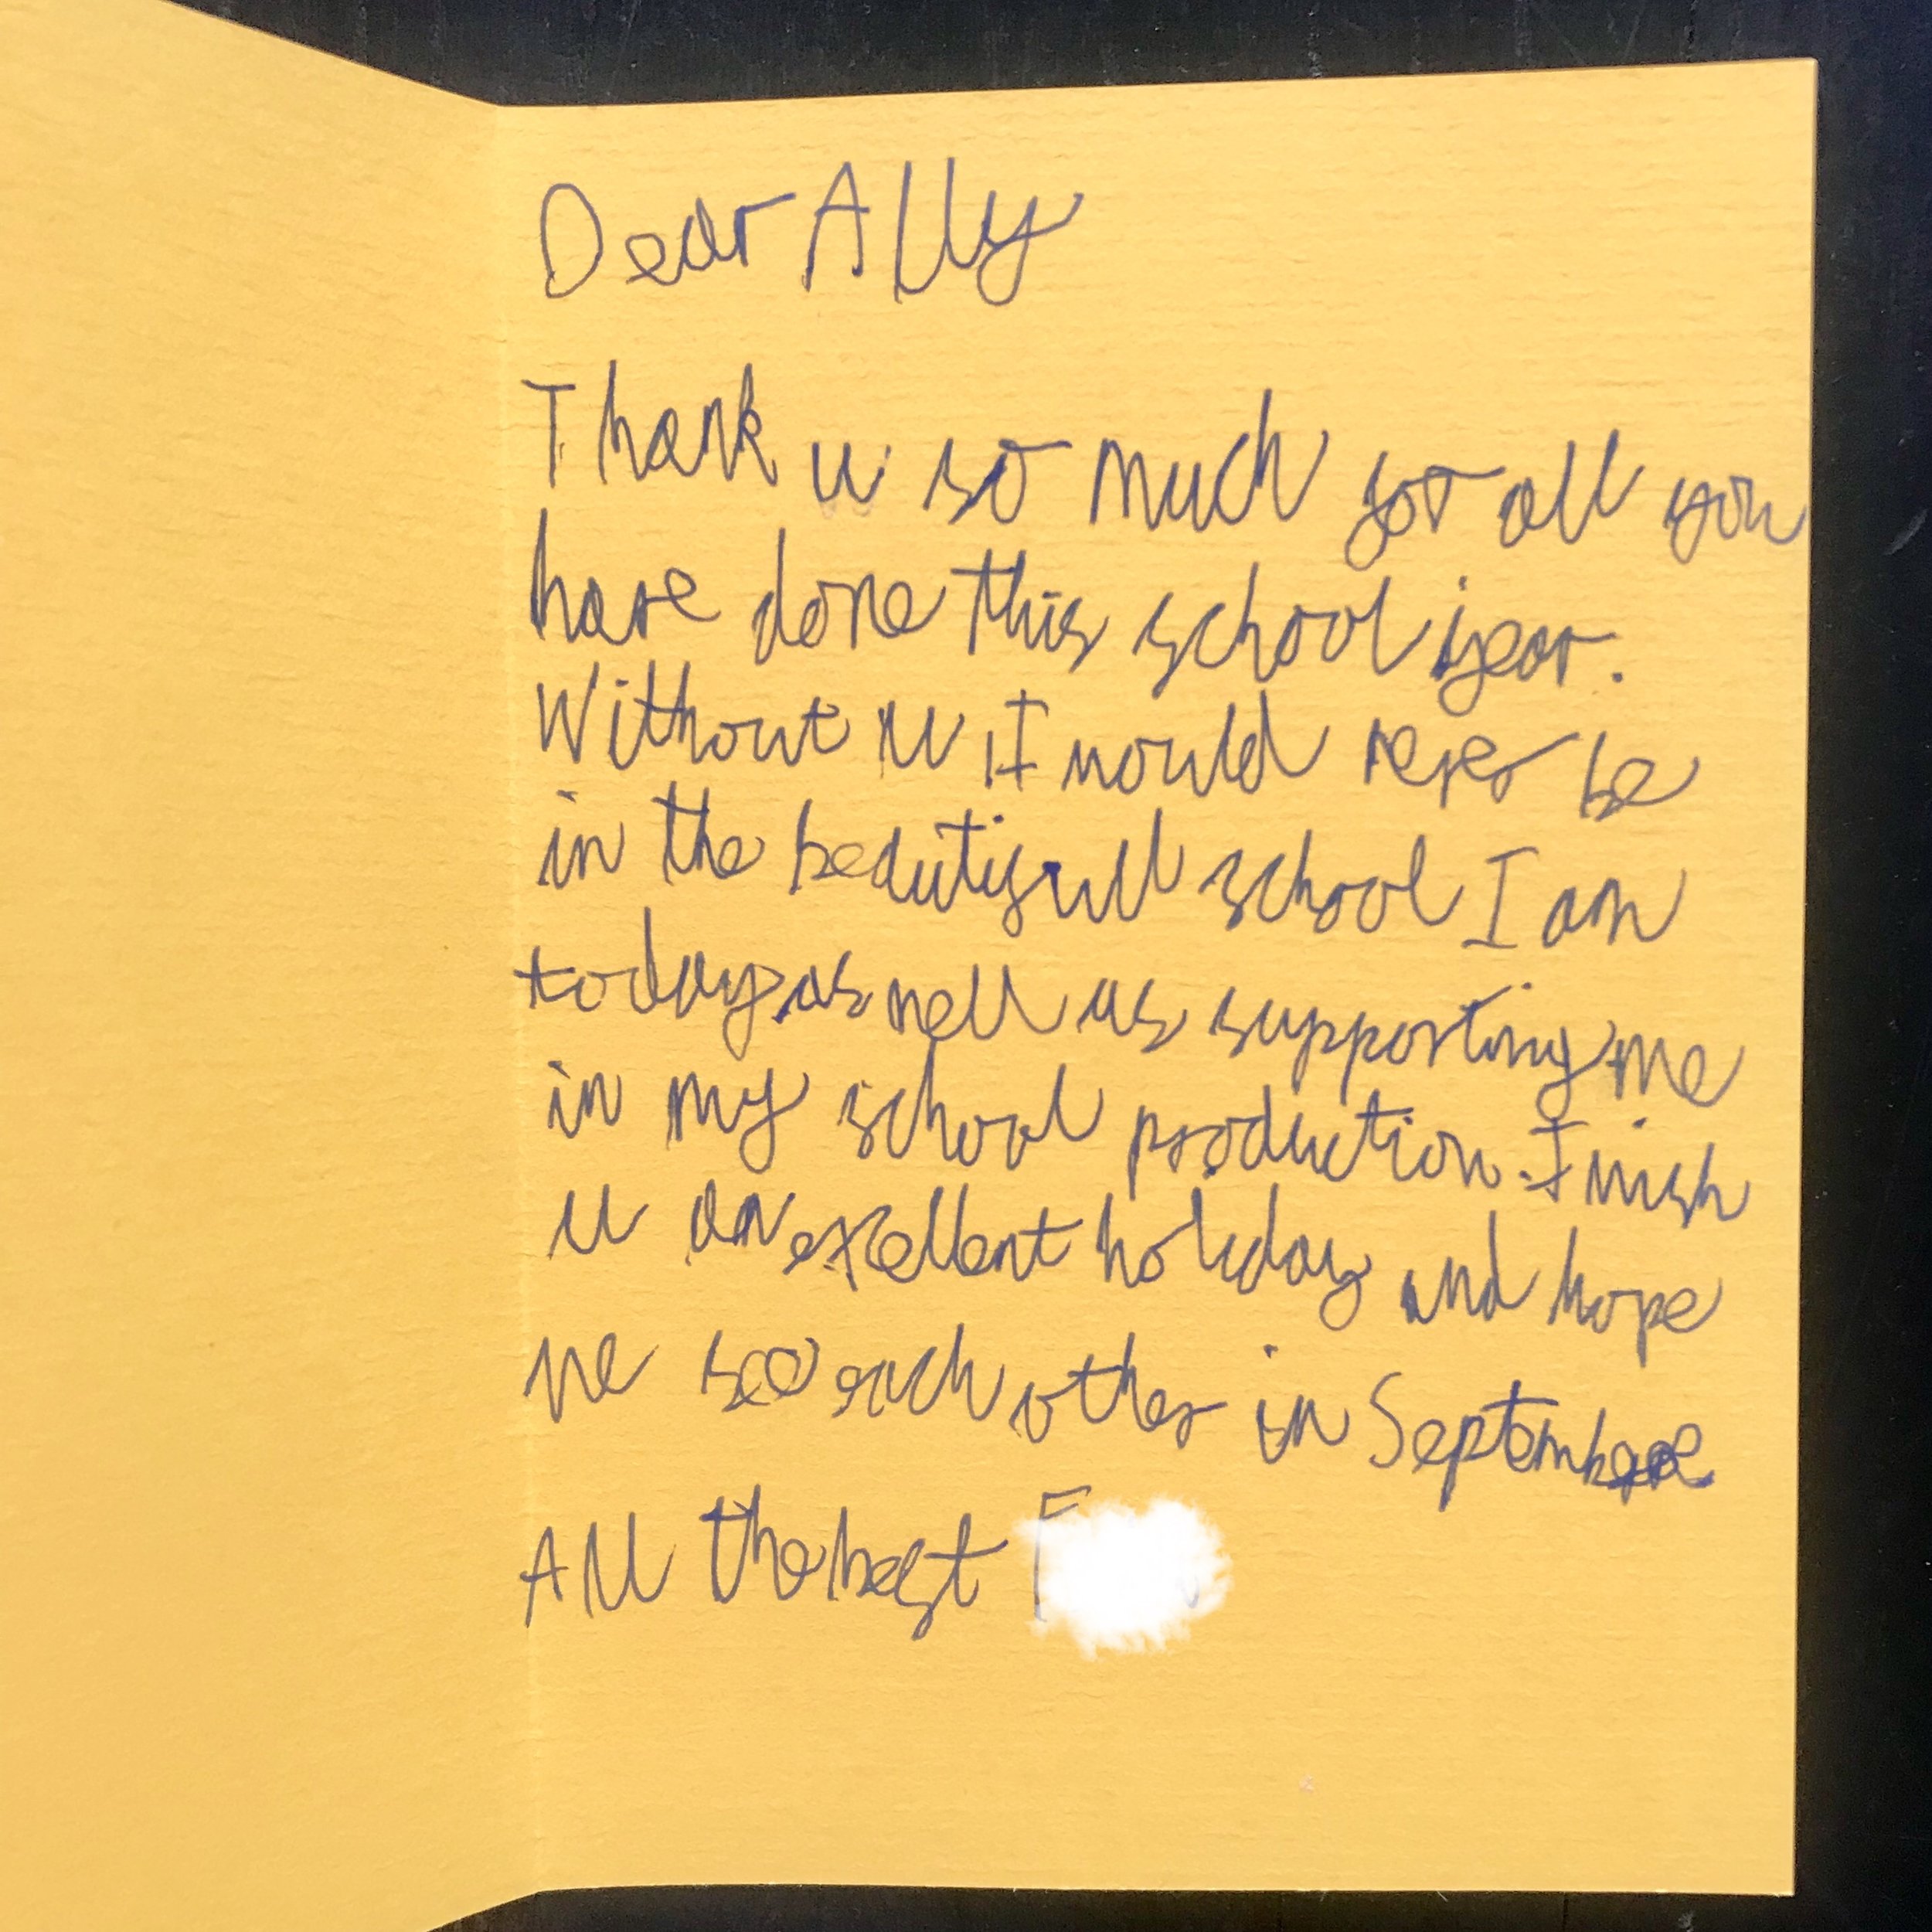 Dear Ally
Thank u so much for all you
have done this school year.
Without u, I would never be
in the beautifull school I am
today, as well as supporting me
in my school production. I wish
u an excellent holiday and hope
we see each other in September
All the best